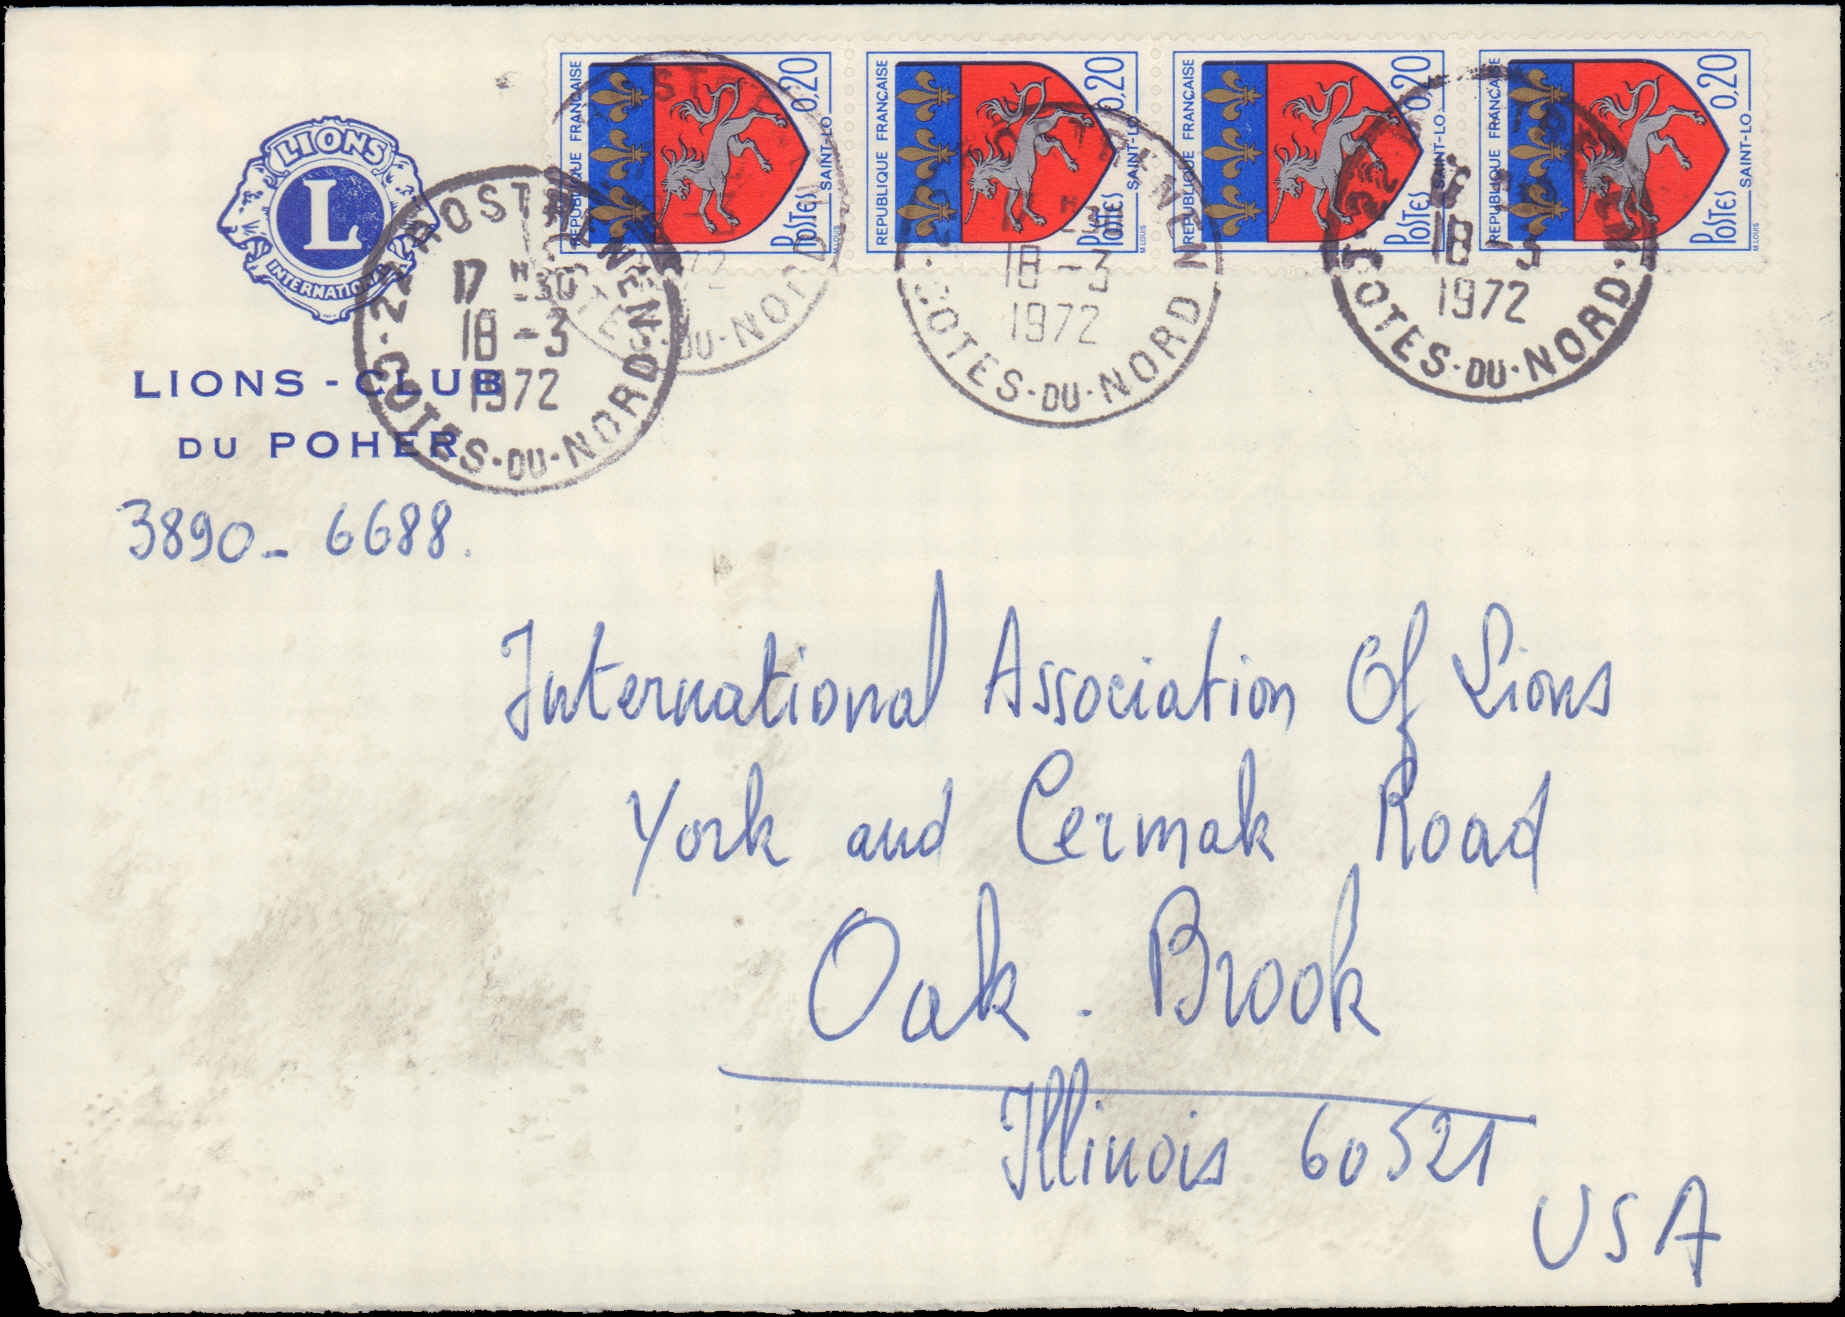 LIONS
L
INTERNATIONAL
LIONS - CLUB
DU POHER
3890 - 6688.
RÉPUBLIQUE FRANÇAISE
0,20
SAINT-LO
POSTES
M.LOUIS
RÉPUBLIQUE FRANÇAISE
0,20
SAINT-LO
POSTES
M.LOUIS
RÉPUBLIQUE FRANÇAISE
0,20
SAINT-LO
POSTES
RÉPUBLIQUE FRANÇAISE
0,20
SAINT-LO
POSTES
M.LOUIS
22 ROSTRENEN
17 H 30
18 - 3
1972
COTES · DU · NORD
1972
COTES · DU · NORD
18 - 3
1972
COTES · DU · NORD
18 - 3
1972
COTES · DU · NORD
International Association Of Lions
York and Cermak Road
Oak . Brook
Illinois 60521
USA